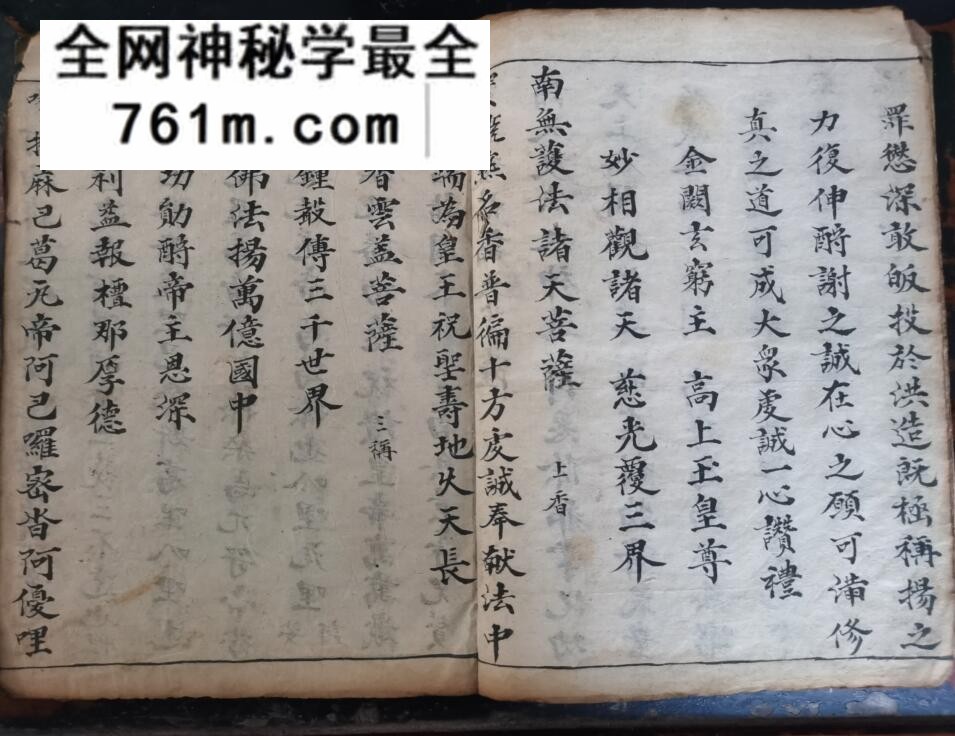 全网神秘学最全
761m.com
罪愆深敢皈投於洪造既極稱揚之
力復伸酧謝之誠在心之願可滿修
真之道可成大衆虔誠一心讚禮
金闕玄窮主 高上玉皇尊
妙相觀諸天 慈光覆三界
南無護法諸天菩薩 上香
名香普徧十方虔誠奉献法中
端為皇王祝聖壽地久天長
香雲盖菩薩 三稱
鍾聲傳三千世界
佛法揚萬億國中
功勛酧帝主恩深
利益報檀那厚德
麻已葛元帝阿已囉密沓阿優哩